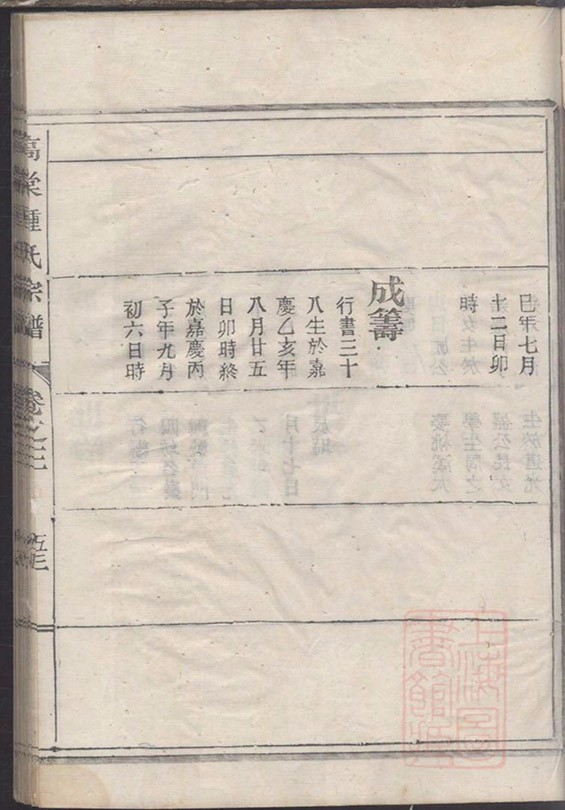 巳年七月
十二日卯
時
成籌
行書三十
八生於嘉
慶乙亥年
八月廿五
日卯時終
於嘉慶丙
子年九月
初六日時
棠鍾氏宗譜
卷之三
五三
上海圖
書館藏